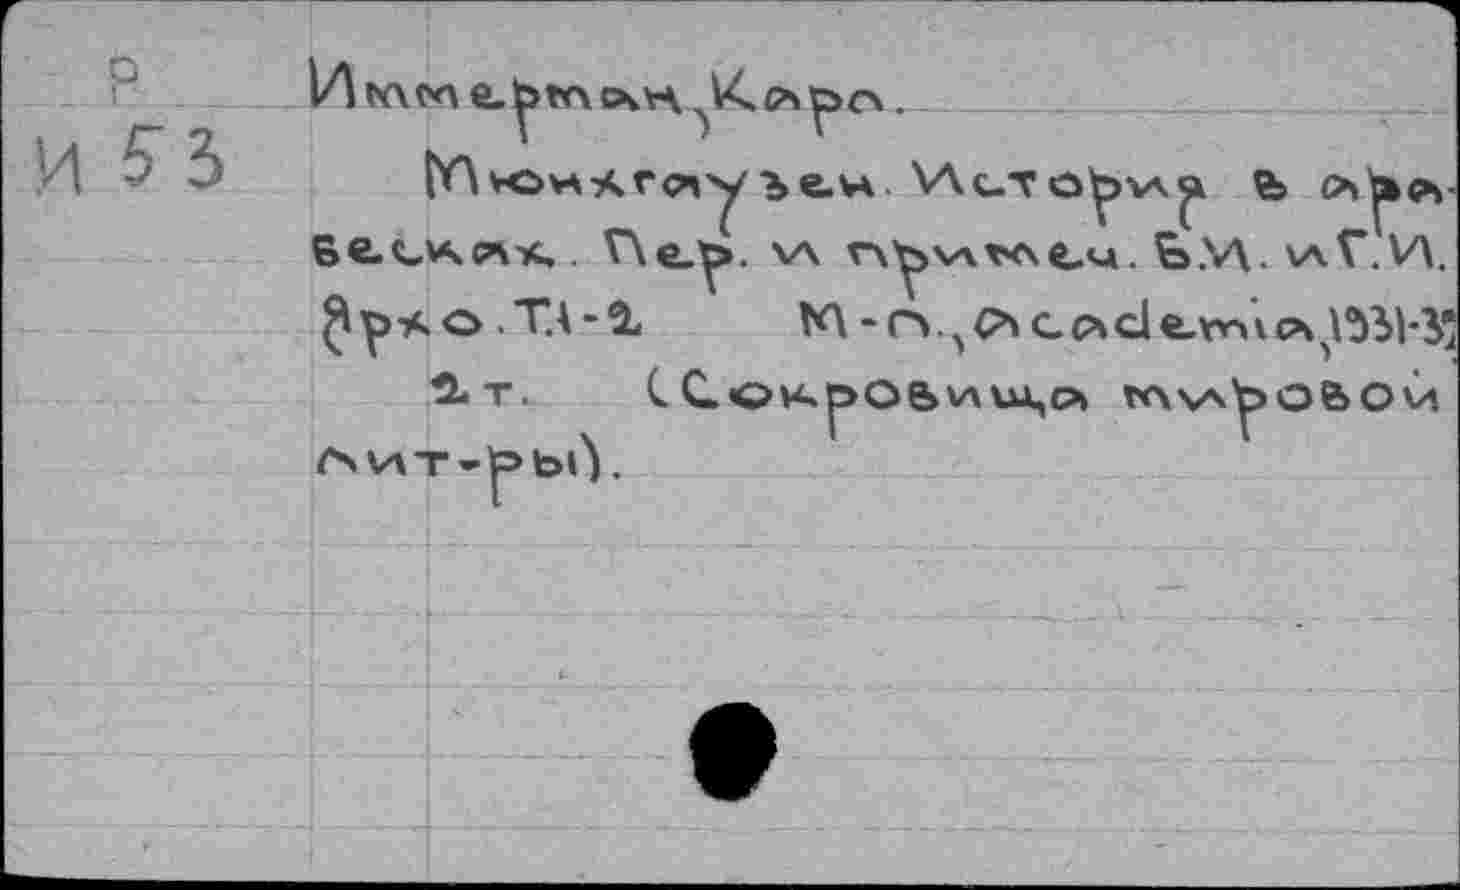 Р
И 53
Иммерман, Карл.
Мюнхгаузен. История в арабесках. Пер. и примеч. В.И. и Г.И.
Ярхо. Т.1-2 М-Л., Academia, 1931-3
2 т. (Сокровища мировой
лит-ры).